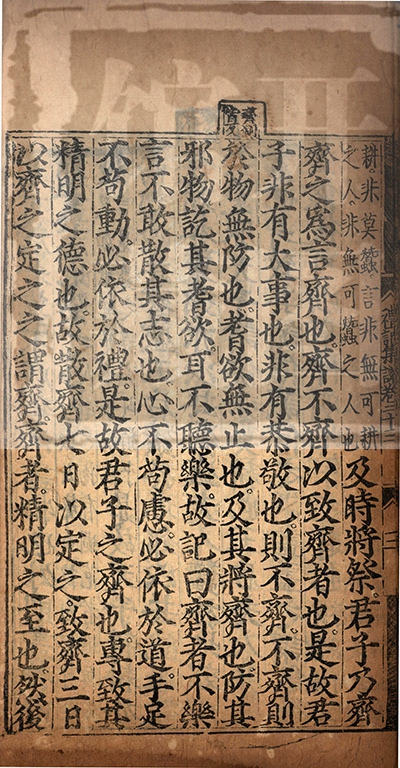 耕。非莫蠶言非無可耕
之人。非無可蠶之人也
及時將祭。君子乃齊
齊之爲言齊也。齊不齊以致齊者也。是故君
子非有大事也。非有恭敬也。則不齊。不齊則
於物無防也。耆欲無止也。及其將齊也。防其
邪物。訖其耆欲。耳不聽樂。故記曰齊者不樂
言不敢散其志也。心不苟慮。必依於道。手足
不苟動。必依於禮。是故君子之齊也。專致其
精明之德也。故散齊七日以定之。致齊三日
以齊之。定之之謂齊。齊者。精明之至也。然後
禮記集說卷
三